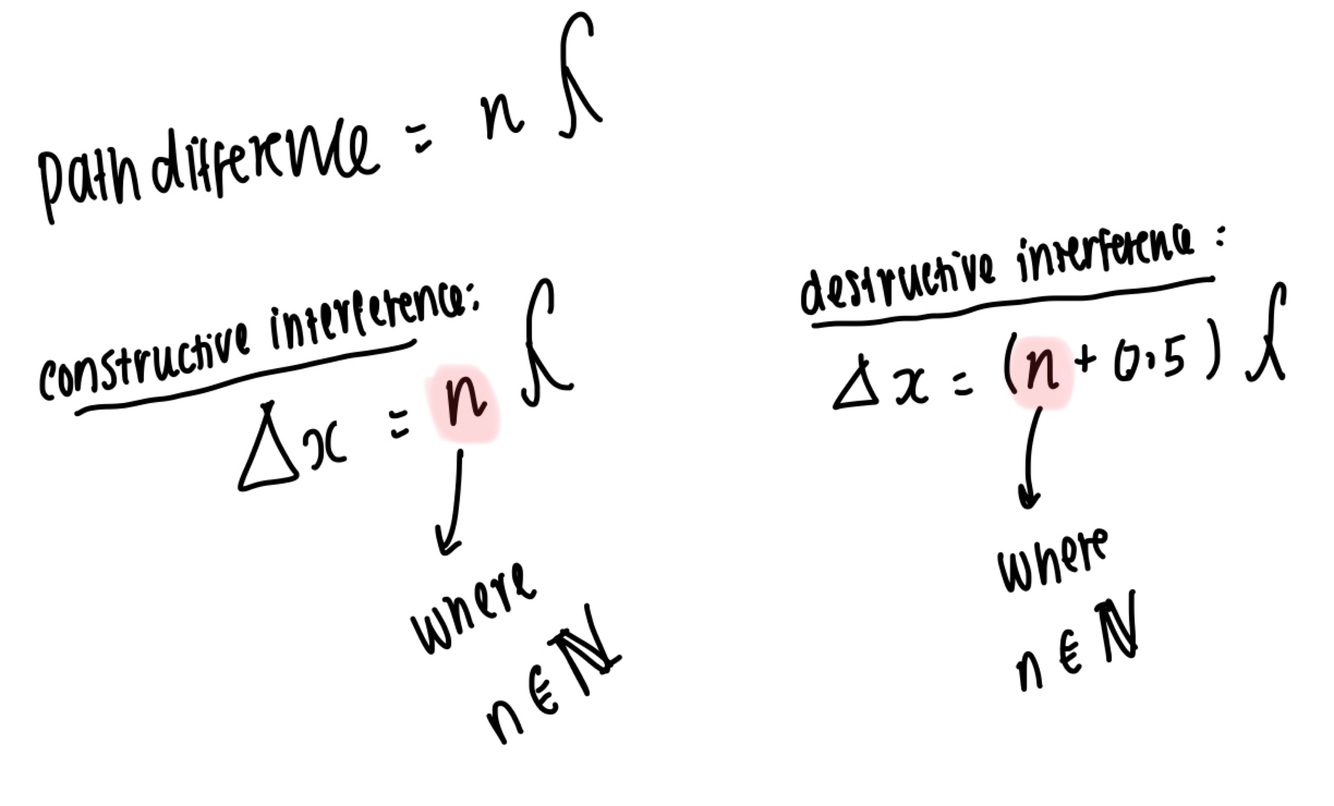 path difference = n λ
constructive interference:
Δx = n λ
where
n ∈ ℕ
destructive interference:
Δx = (n + 0.5) λ
where
n ∈ ℕ